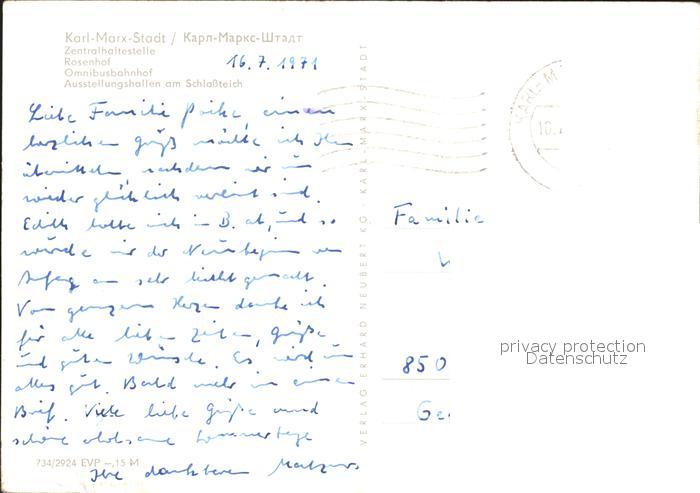 Karl-Marx-Stadt / Карл-Маркс-Штадт
Zentralhaltestelle
Rosenhof
Omnibusbahnhof
Ausstellungshallen am Schloßteich
16.7.1971
Liebe Familie einen
herzlichen Gruß möchte ich Ihnen
übermitteln, nachdem wir nun
wieder glücklich vereint sind.
Edith holte mich in B. ab, und so
wurde mir der Neubeginn von
Anfang an sehr leicht gemacht.
Von ganzem Herzen danke ich
für alle lieben Zeilen, Grüße
und guten Wünsche. Es wird nun
alles gut. Bald mehr in einem
Brief. Viele liebe Grüße und
schöne erholsame Sommertage
Ihre dankbaren
734/2924 EVP -,15 M
VERLAG ERHARD NEUBERT KG · KARL-MARX-STADT
KARL-M
Familie
850
Ge
privacy protection
Datenschutz